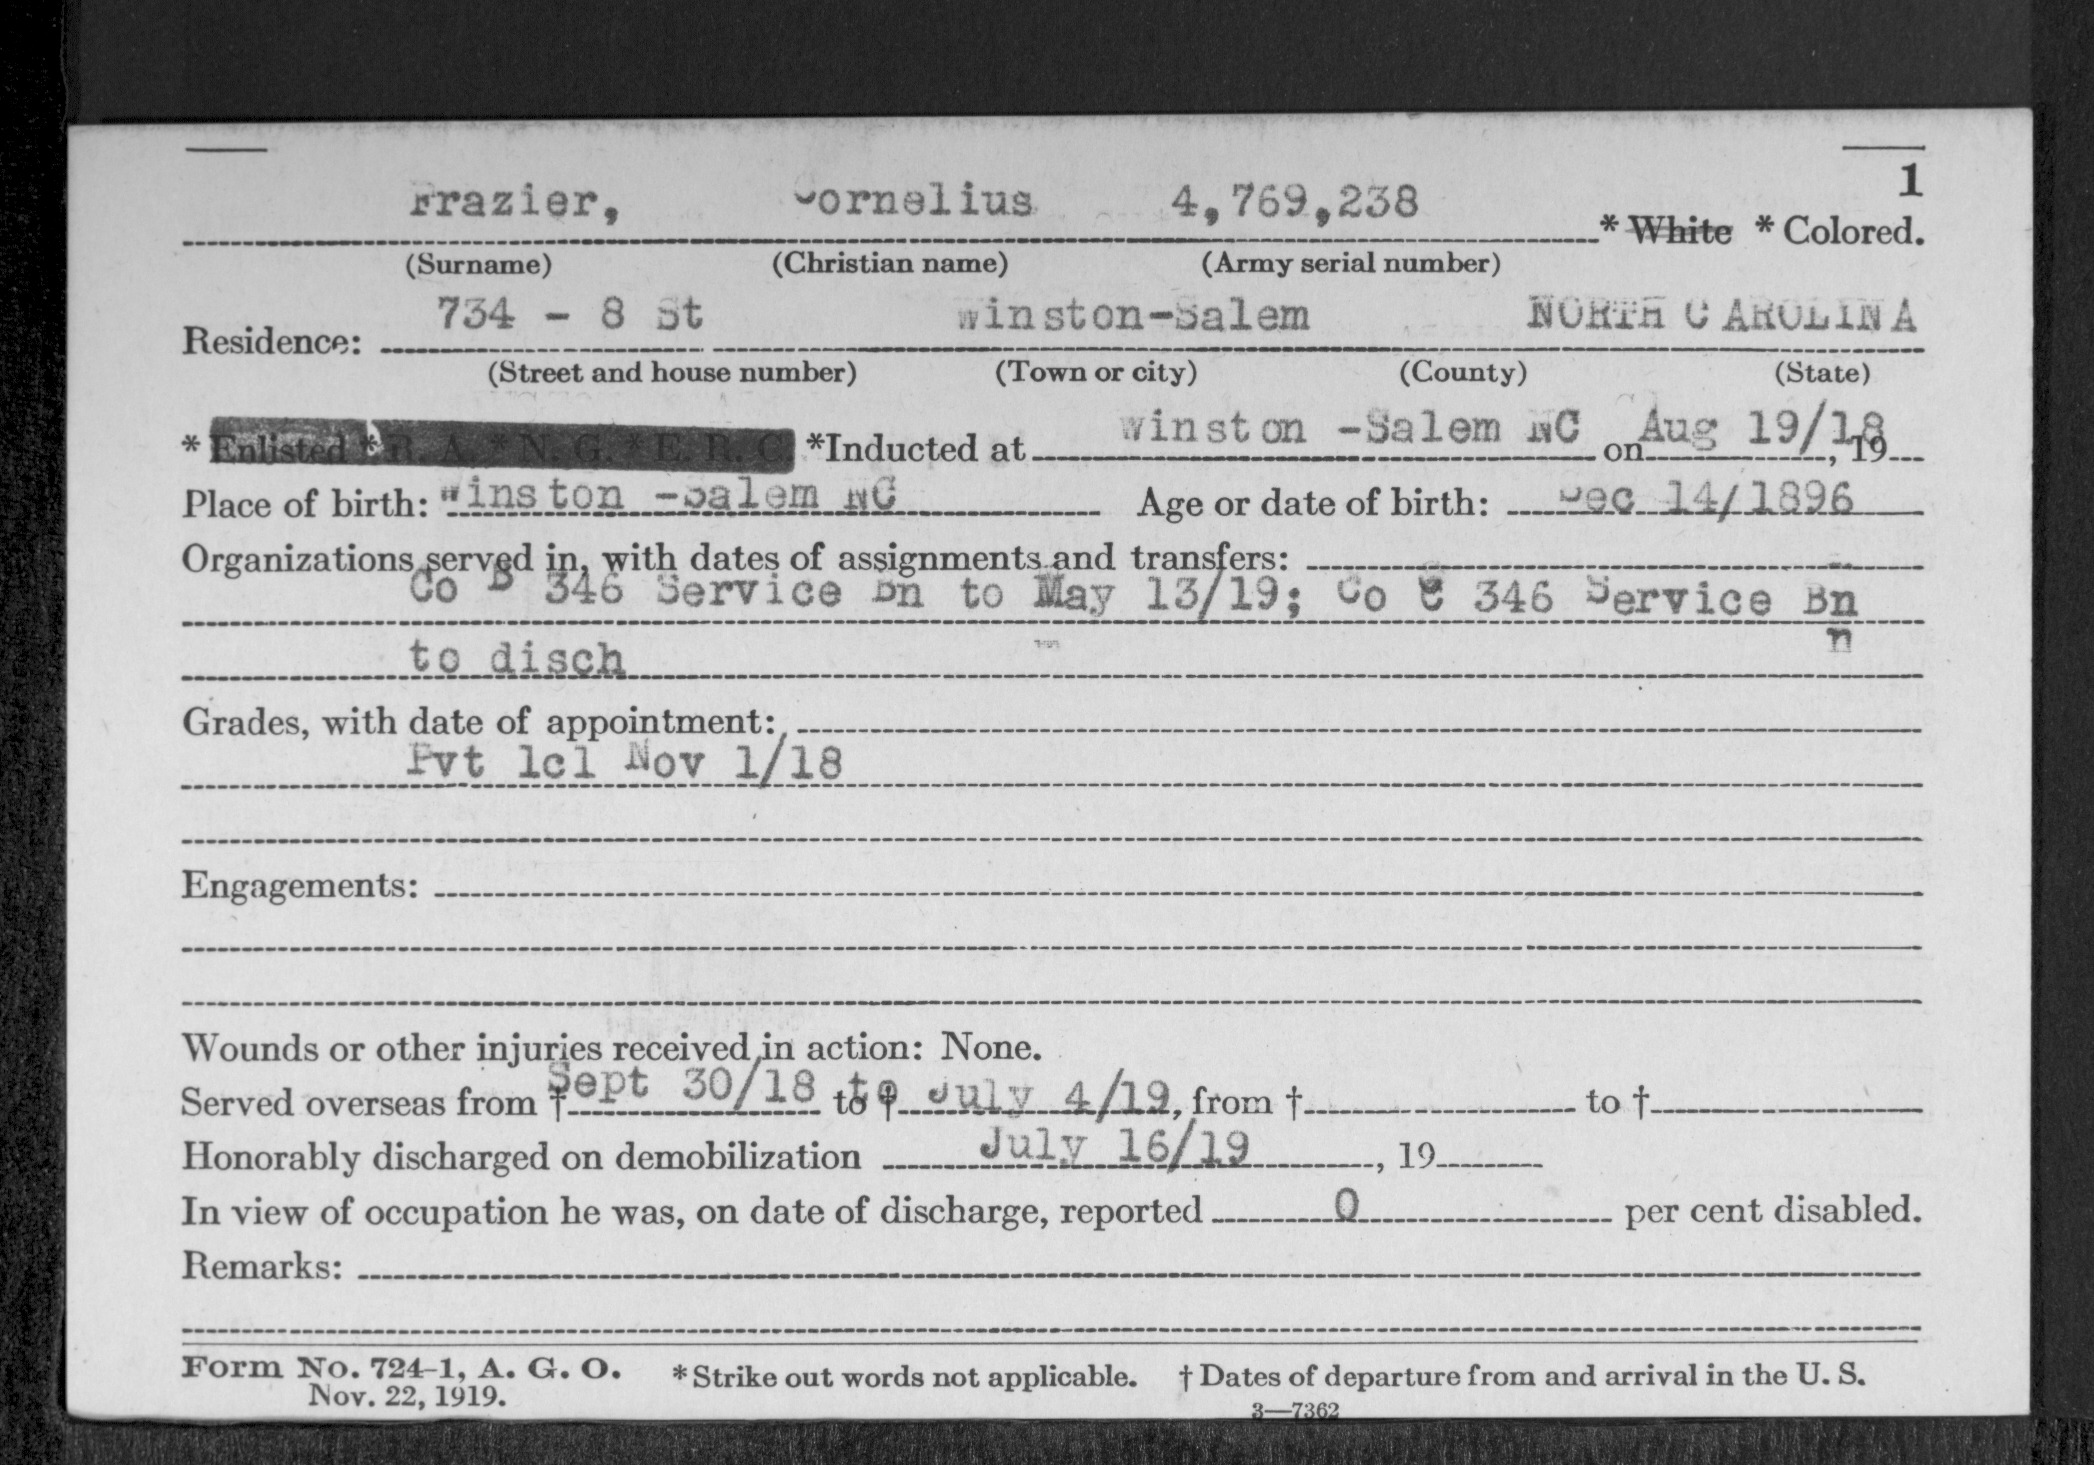 1
Frazier, Cornelius 4,769,238 * White * Colored.
(Surname) (Christian name) (Army serial number)
Residence: 734 - 8 St Winston-Salem NORTH CAROLINA
(Street and house number) (Town or city) (County) (State)
* Enlisted * R. A. * N. G. * E. R. C. *Inducted at Winston -Salem NC on Aug 19/18, 19
Place of birth: Winston -Salem NC Age or date of birth: Dec 14/1896
Organizations served in, with dates of assignments and transfers:
Co B 346 Service Bn to May 13/19; Co C 346 Service Bn
n
to disch
Grades, with date of appointment:
Pvt 1cl Nov 1/18
Engagements:
Wounds or other injuries received in action: None.
Served overseas from † Sept 30/18 to † to July 4/19, from † to †
Honorably discharged on demobilization July 16/19, 19
In view of occupation he was, on date of discharge, reported 0 per cent disabled.
Remarks:
Form No. 724-1, A. G. O. * Strike out words not applicable. † Dates of departure from and arrival in the U. S.
Nov. 22, 1919.
3—7362